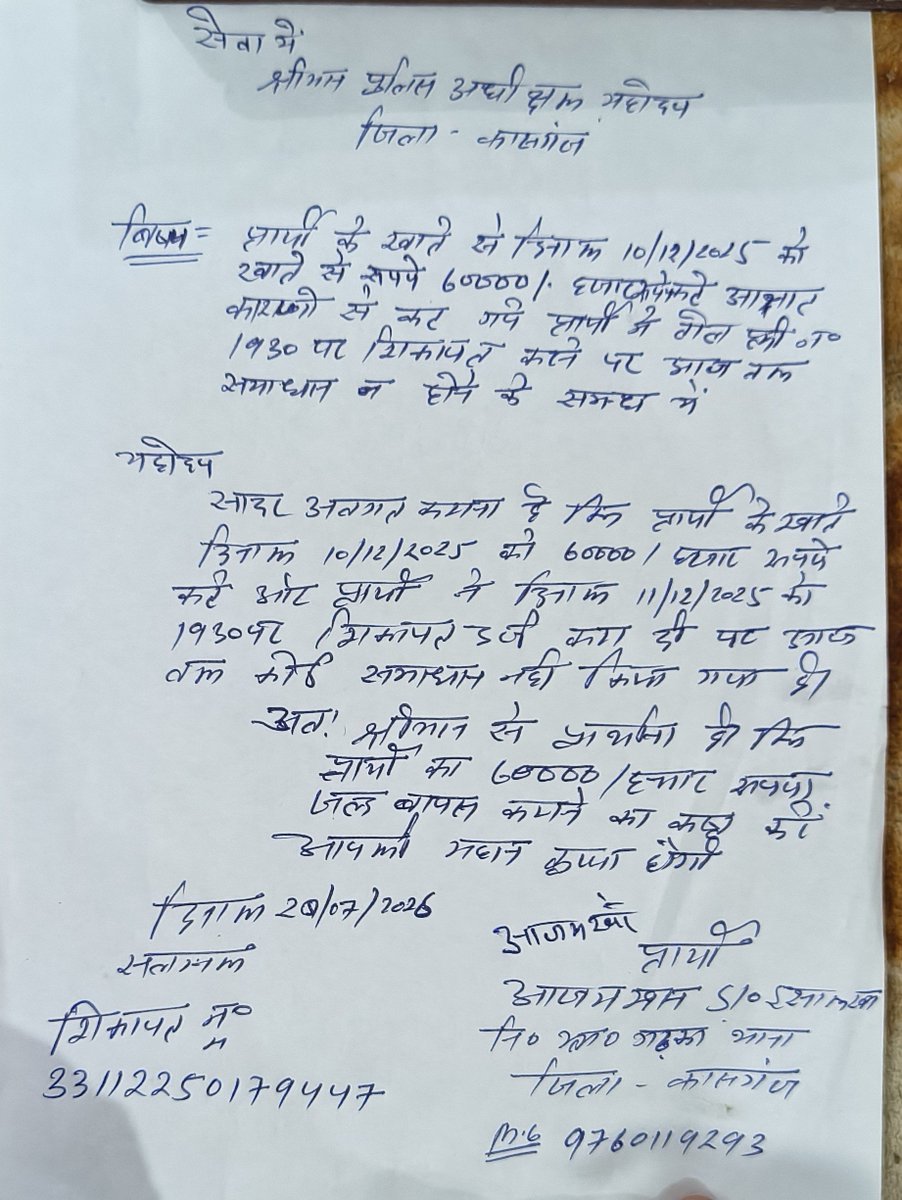 सेवा में
श्रीमान पुलिस अधीक्षक महोदय
जिला - कासगंज
विषय = प्रार्थी के खाते से दिनाक 10/12/2025 को
खाते से रूपये 60000/. हजार आज्ञात
कारणो से कट गये प्रार्थी ने टोल फ्री न०
1930 पर शिकायत करने पर आज तक
समाधान न होने के सम्बध में
महोदय
सादर अवगत कराना है कि प्रार्थी के खाते
दिनाक 10/12/2025 को 60000/ हजार रूपये
कटे ओर प्रार्थी ने दिनाक 11/12/2025 को
1930 पर शिकायत दर्ज करा दी पर आज
तक कोई समाधान नही किया गया है।
अत! श्रीमान से प्रार्थना है कि
प्रार्थी का 60000/हजार रूपया
जल्द वापस कराने का कष्ट करें
आपकी महान कृपा होगी
दिनाक 20/07/2026
सलग्नक
आजमखाँ
प्रार्थी
आजम खान S/०
नि०
जिला - कासगंज
शिकायत न०
33112250179447
9760119293